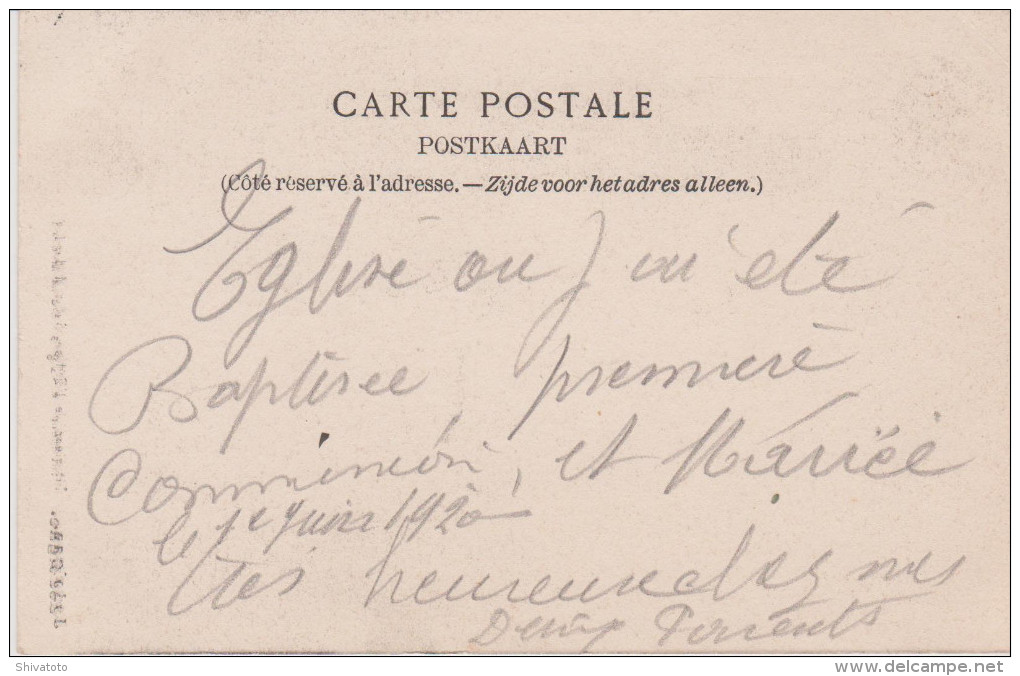 CARTE POSTALE
POSTKAART
(Côté réservé à l'adresse. — Zijde voor het adres alleen.)
Eglise ou J'ai été
Baptisée, première
Communion, et Mariée
le 1e juin 1920
très heureuse chez mes
Deux Parents
Shivatoto
www.delcampe.net